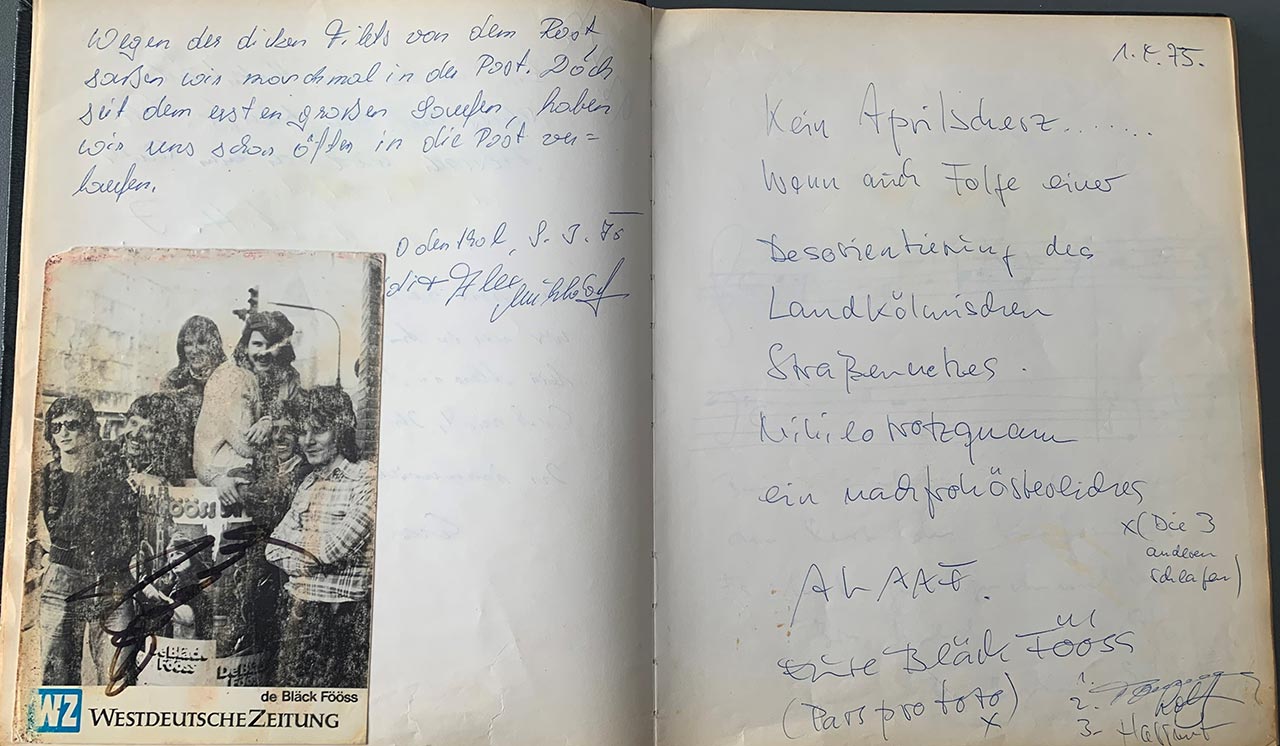 Wegen des dicken Filets von dem Rost
saßen wir manchmal in der Post. Doch
seit dem ersten großen Saufen, haben
wir uns schon öfters in die Post ver=
laufen.
Odenthal, 75
de Bläck Fööss
WZ WESTDEUTSCHE ZEITUNG
Fööss
De Bläck
Fööss
De Bläck
Fööss
1.4.75.
Kein Aprilscherz........
Wenn auch Folge einer
Desorientierung des
Landkölnischen
Straßennetzes.
ein nachfrohösterliches
x(Die 3
anderen
schlafen)
ALAAF.
Eure Bläck Fööss
(Pars pro toto)
x
1.
2. Rolf
3-